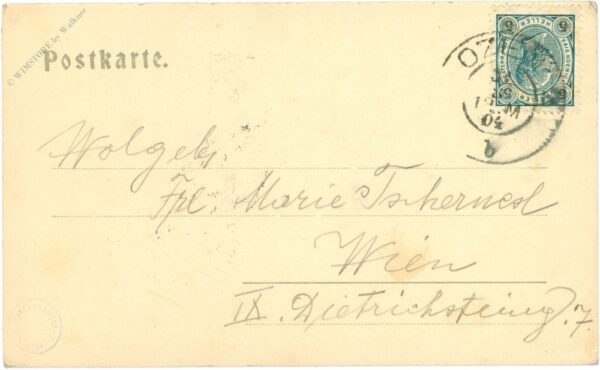 © WIMSTORE by Walkner
Postkarte.
5 HELLER 5
04
Wolgeb.
Frl. Marie Tschernesl
Wien
IX. Dietrichsteing. 7.